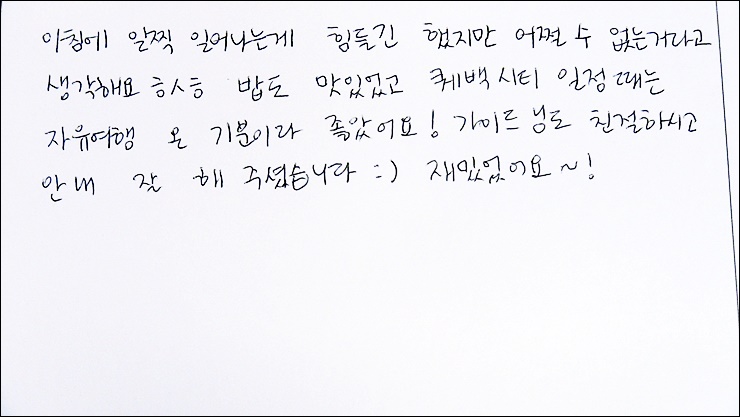 아침에 일찍 일어나는게 힘들긴 했지만 어쩔 수 없는거라고
생각해요 ㅎㅅㅎ 밥도 맛있었고 퀘백시티 일정 때는
자유여행 온 기분이라 좋았어요! 가이드님도 친절하시고
안내 잘 해 주셨습니다 :) 재밌었어요~!